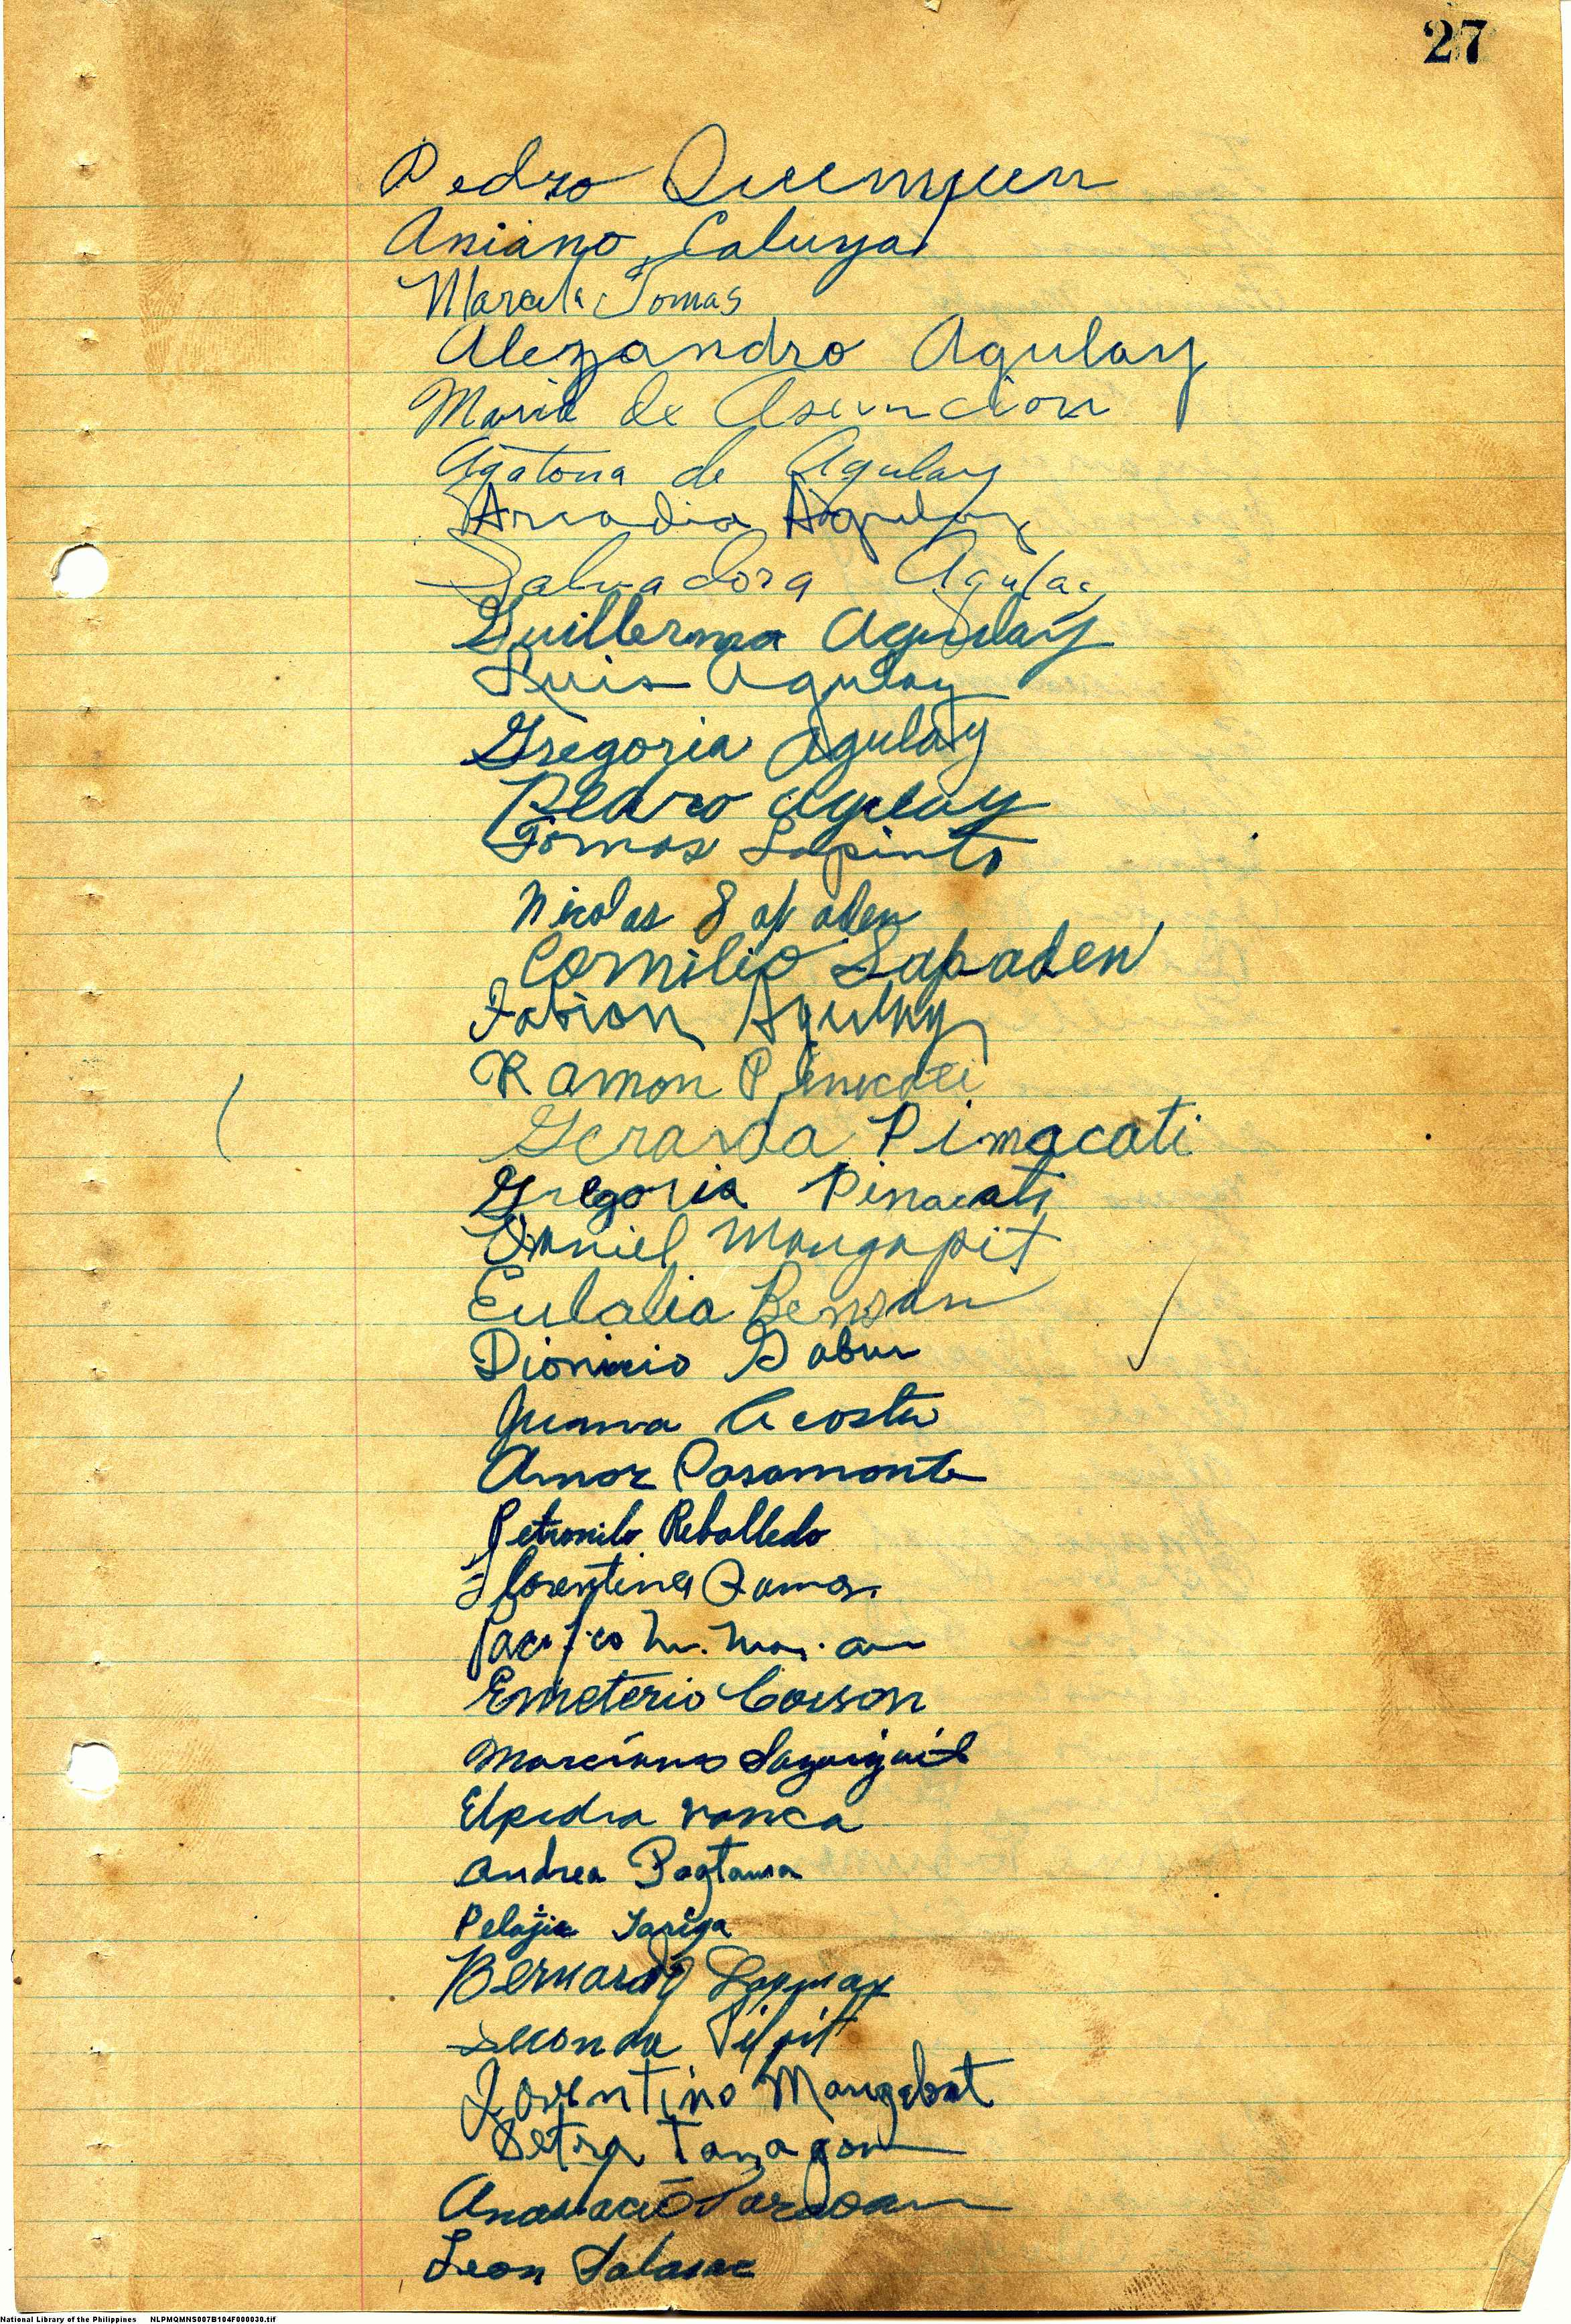 27
Pedro Quemquen
Aniano Caluya
Marcela Tomas
Alezandro Agulay
Maria de Asuncion
Agatona de Agulay
Arcadia Agulay
Salvadora Agulay
Guillerma Agulay
Luis Agulay
Gregoria Agulay
Pedro Agulay
Tomas Lapinto
Nicolas Sapaden
Cornilio Sapaden
Fabion Agulay
Ramon Pinacati
Gerarda Pimacati
Gregoria Pinacati
Daniel Mangapit
Eulalia Benson
Dionicio Gabur
Juana Acosta
Amor Pasamonte
Petronilo Reballedo
Florentina Ramos
Pacifico
Emeterio Corson
Marciano
Elpedia
Andrea Pagtama
Pelajia Tariga
Bernardo Lagmay
Seconda Pilpit
Joventino Mangabat
Petra Tamagon
Anastacio Paraoan
Leon Salasac
National Library of the Philippines NLPMQMNS007B104F000030.tif